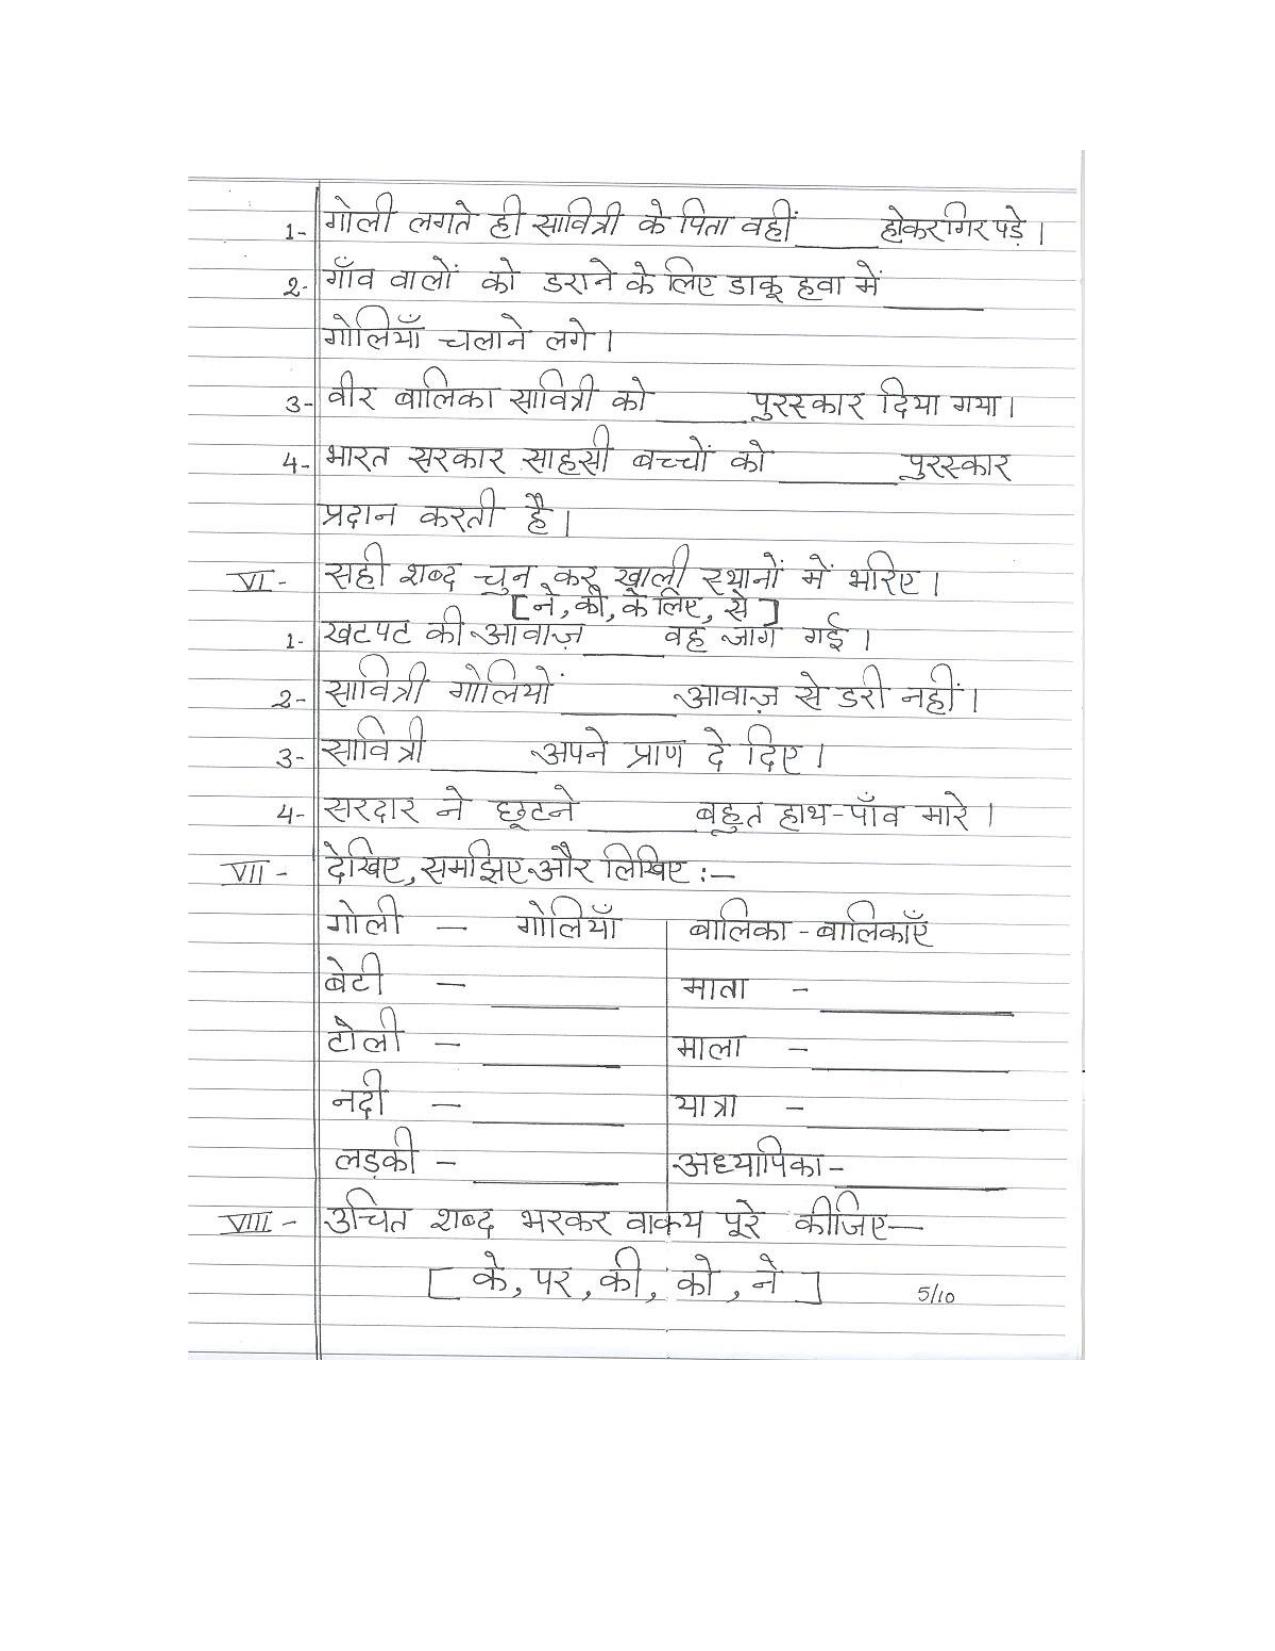 1- गोली लगते ही सावित्री के पिता वहीं ____ होकर गिर पड़े।
2- गाँव वालों को डराने के लिए डाकू हवा में ____
गोलियाँ चलाने लगे।
3- वीर बालिका सावित्री को ____ पुरस्कार दिया गया।
4- भारत सरकार साहसी बच्चों को ____ पुरस्कार
प्रदान करती है।
VI - सही शब्द चुन कर खाली स्थानों में भरिए।
[ने, की, के लिए, से]
1- खटपट की आवाज़ ____ वह जाग गई।
2- सावित्री गोलियों ____ आवाज़ से डरी नहीं।
3- सावित्री ____ अपने प्राण दे दिए।
4- सरदार ने छूटने ____ बहुत हाथ-पाँव मारे।
VII - देखिए, समझिए और लिखिए :-
गोली - गोलियाँ बालिका - बालिकाएँ
बेटी - ____ माता - ____
टोली - ____ माला - ____
नदी - ____ यात्रा - ____
लड़की - ____ अध्यापिका - ____
VIII - उचित शब्द भरकर वाक्य पूरे कीजिए-
[के, पर, की, को, ने]
5/10